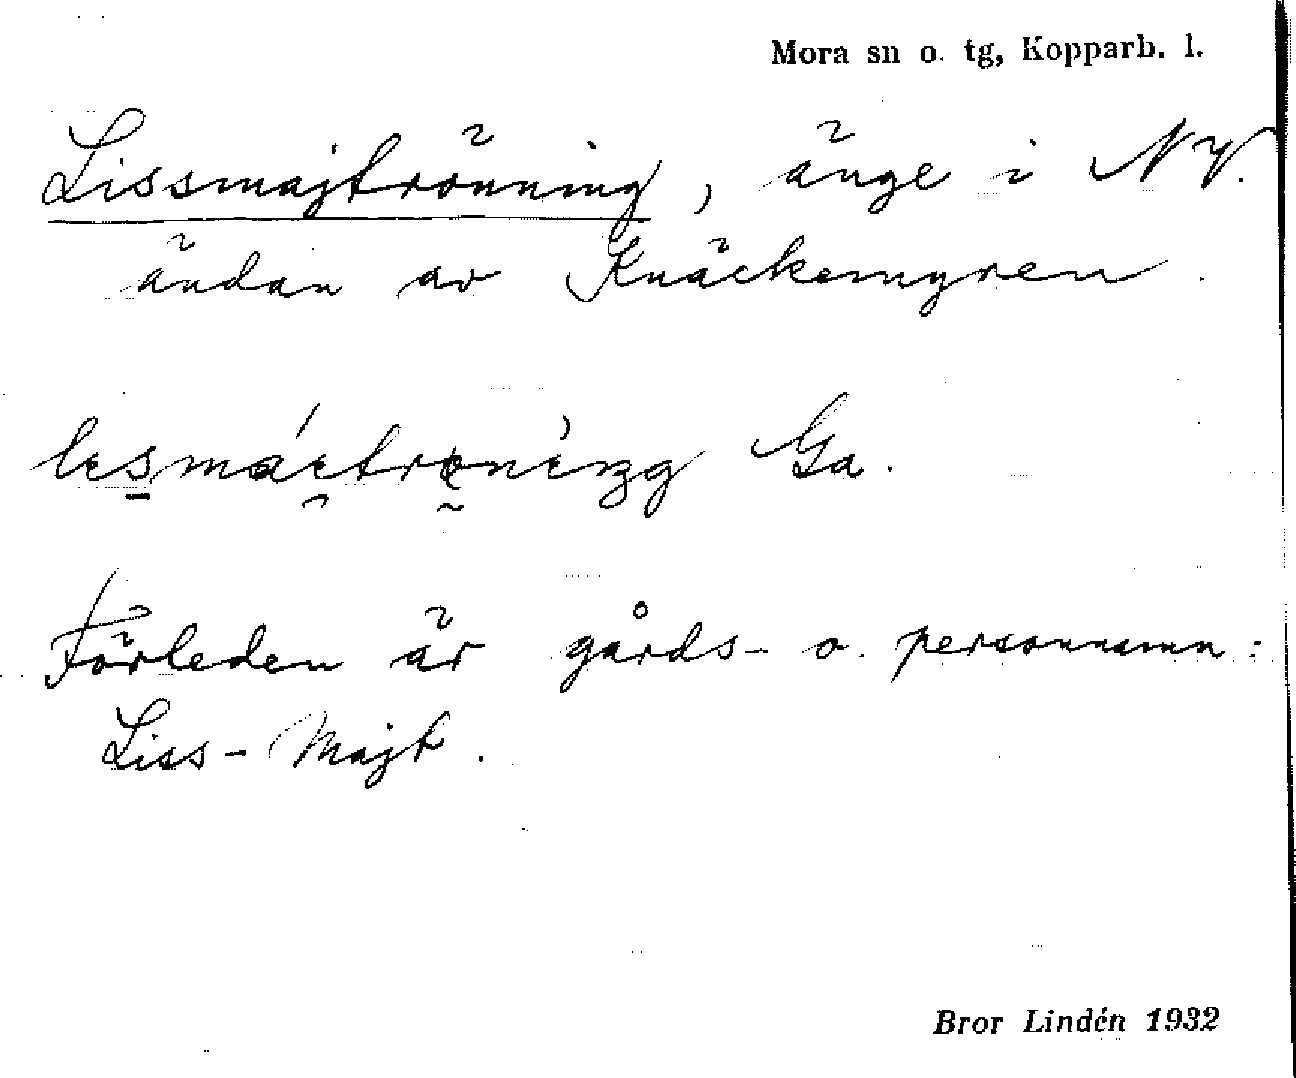 Mora sn o. tg, Kopparb. l.
Lissmajtrönning, änge i NV.
ändan av Knäckemyren.
Ga.
Förleden är gårds- o. personnamn:
Liss-Majt.
Bror Lindén 1932